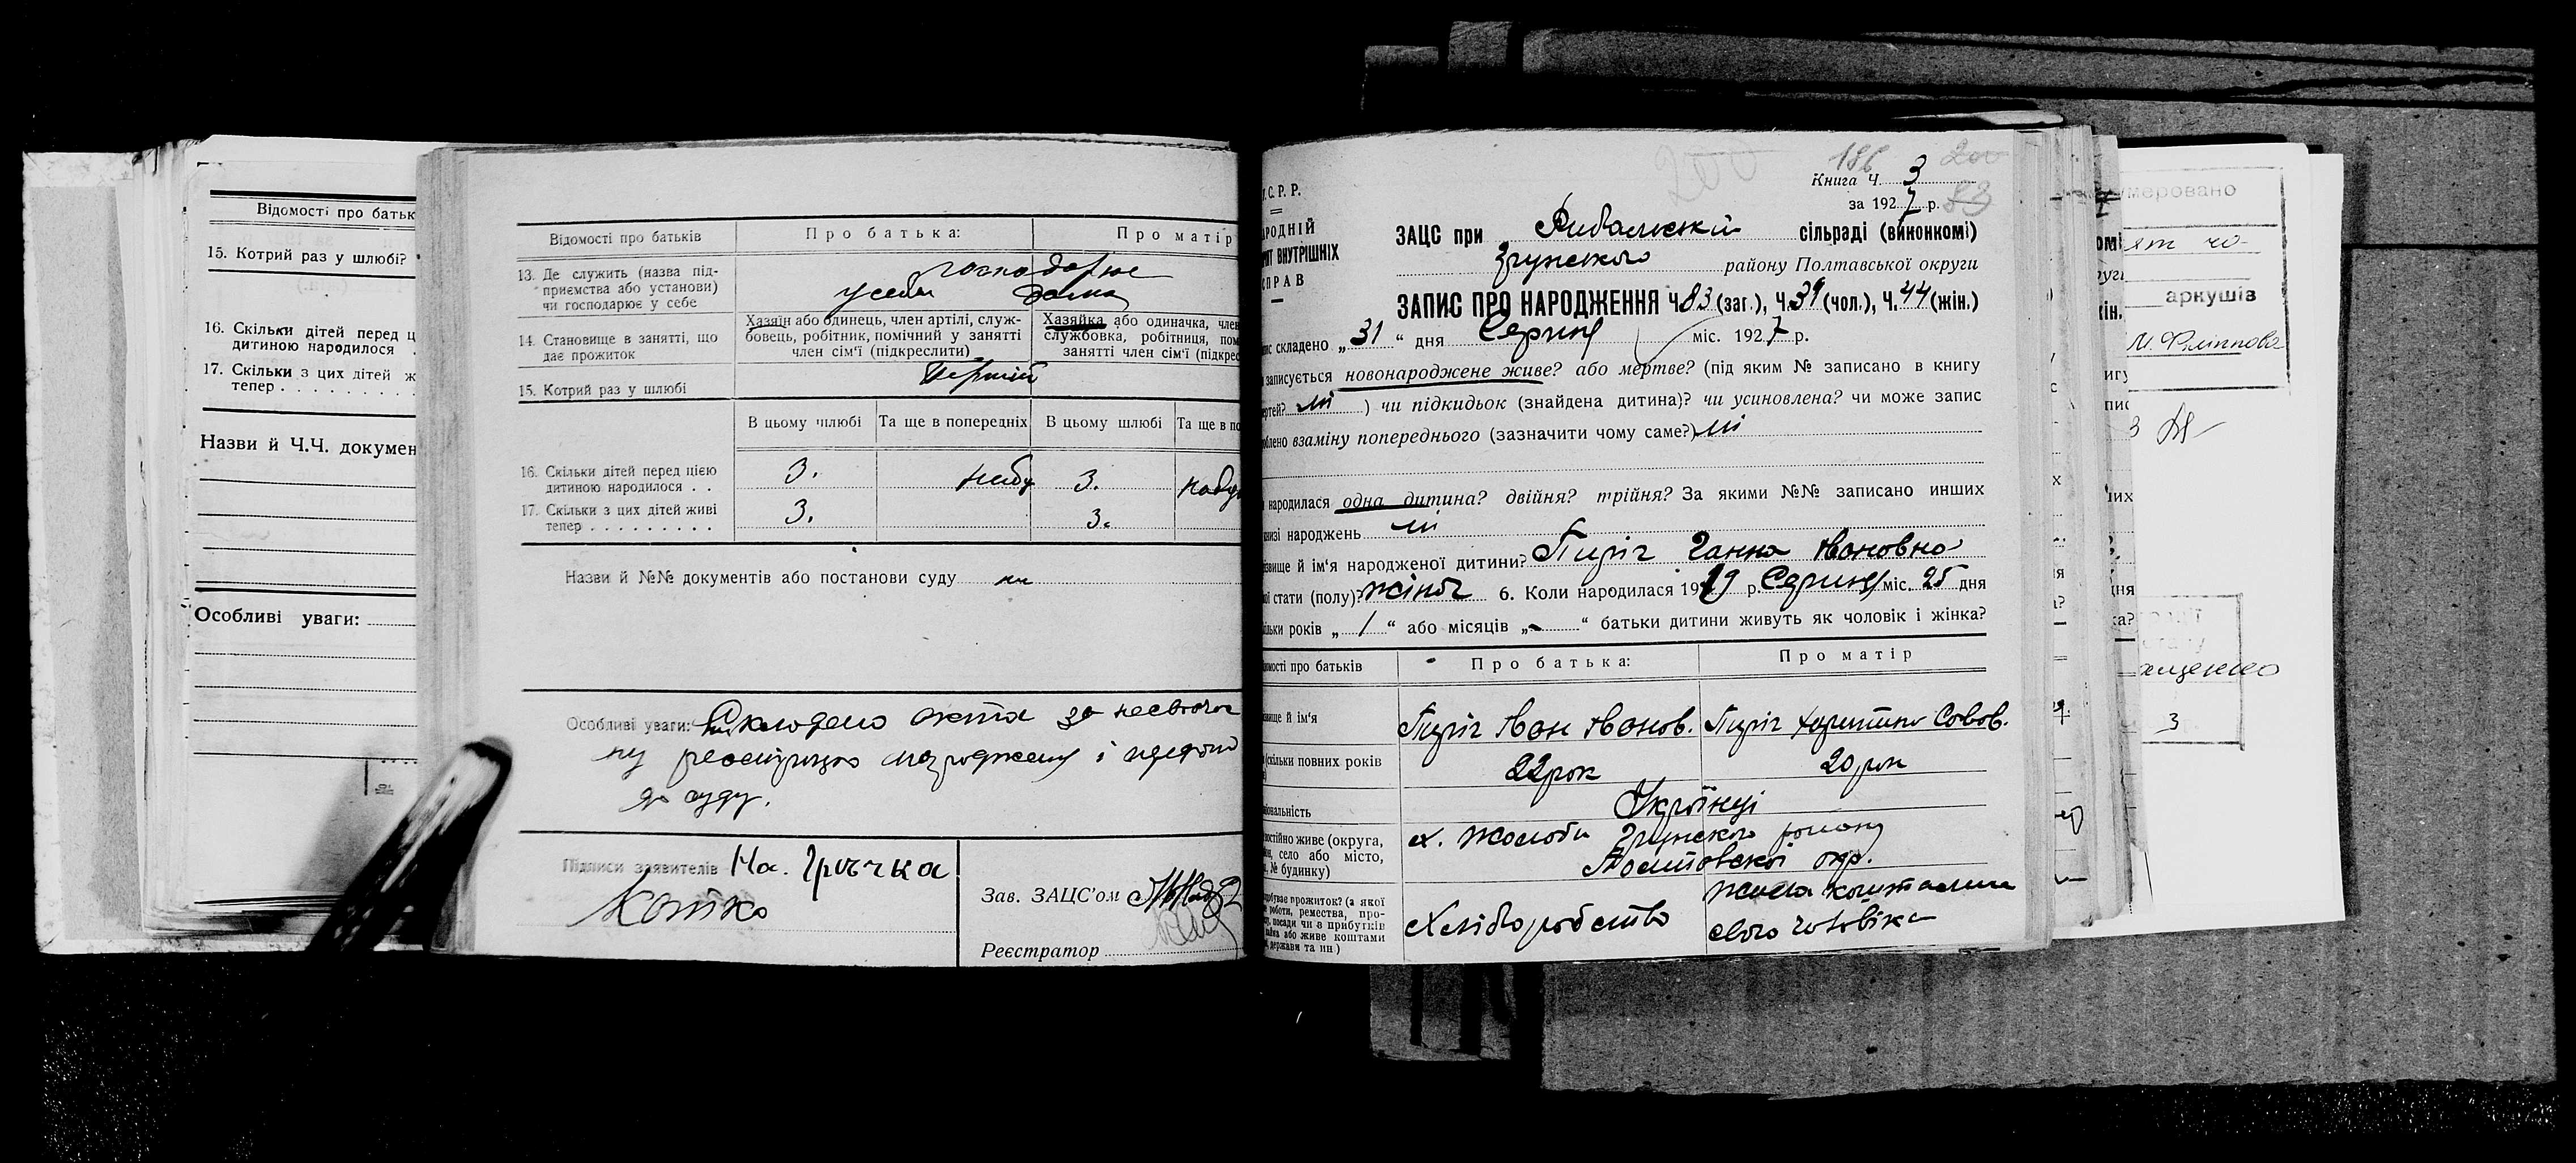 Відомості про батьк
15. Котрий раз у шлюбі?
16. Скільки дітей перед ц
дитиною народилося
17. Скільки з цих дітей ж
тепер
Назви й Ч.Ч. докумен
Особливі уваги:
Відомості про батьків
Про батька:
Про матір
13. Де служить (назва під-
приємства або установи)
чи господарює у себе
господарює
у себе дома
14. Становище в занятті, що
дає прожиток
Хазяїн або одинець, член артілі, служ-
бовець, робітник, помічний у занятті
член сім'ї (підкреслити)
Хазяйка або одиначка, член
службовка, робітниця, пом
занятті член сім'ї (підкрес
15. Котрий раз у шлюбі
Перший
В цьому шлюбі
Та ще в попередніх
В цьому шлюбі
Та ще в по
16. Скільки дітей перед цією
дитиною народилося . .
3. небу 3.
17. Скільки з цих дітей живі
тепер
3. 3.
Назви й №№ документів або постанови суду
Особливі уваги: Складено акта за несвоєчас
ну реєстрацію народження і
до суду.
Підписи заявителів На. Гричка
Зав. ЗАЦС'ом
Реєстратор
186
200
200
Книга Ч. 3
за 1927 р. 83
С.Р.Р.
РОДНІЙ
ВНУТРІШНІХ
СПРАВ
ЗАЦС при Рибальский сільраді (виконкомі)
Грунского району Полтавської округи
ЗАПИС ПРО НАРОДЖЕННЯ Ч.83 (заг.), Ч.39 (чол.), Ч.44 (жін.)
складено „31“ дня Серпня міс. 1927 р.
записується новонароджене живе? або мертве? (під яким № записано в книгу
ертей? ні ) чи підкидьок (знайдена дитина)? чи усиновлена? чи може запис
облено взаміну попереднього (зазначити чому саме?) ні
народилася одна дитина? двійня? трійня? За якими №№ записано инших
книзі народжень ні
звище й ім'я народженої дитини? Пиріг Ганна Івановна
стати (полу)? жіноч 6. Коли народилася 19 р. Серпня міс. 25 дня
ільки років „1“ або місяців „-“ батьки дитини живуть як чоловік і жінка?
домості про батьків
Про батька:
Про матір
звище й ім'я
Пиріг Іван Іванов.
Пиріг Харитина Совов.
(скільки повних років
22 рок
20 рок
ціональність
Українці
постійно живе (округа,
село або місто,
№ будинку)
х. Жолоби Грунского району
Полтовскої окр.
прожиток? (з якої
роботи, ремества, про-
посади чи з прибутків
або живе коштами
держави та ин)
Хліборобство
жила коштами
свого чоловіка
умеровано
аркушів
М. Филиппова
3